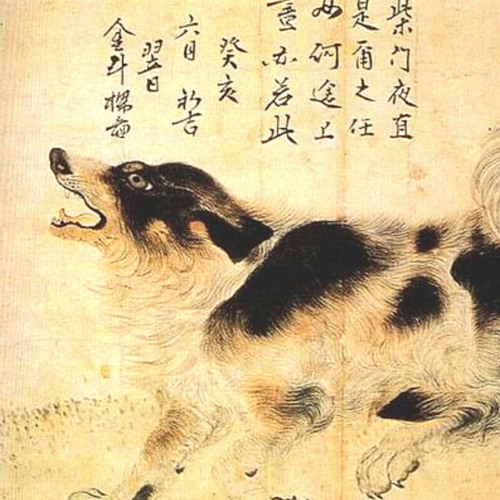 柴門夜直
是爾之任
如何途上
晝亦若此
癸亥
六月初吉
翌日
金斗樑啚